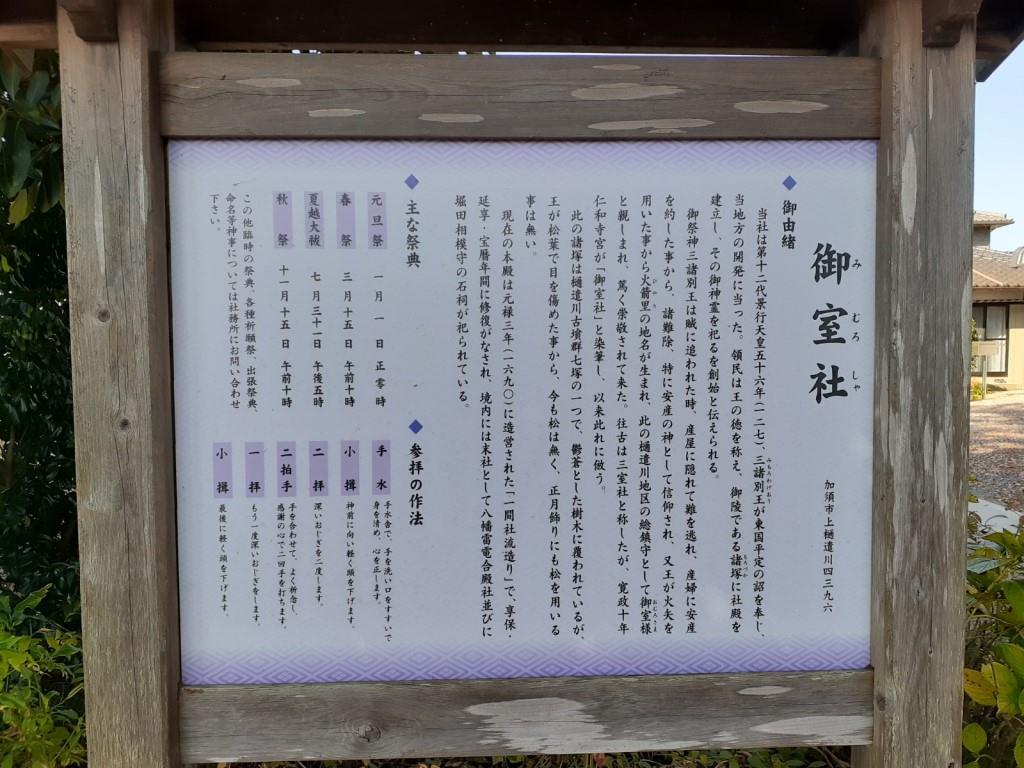 御室社
み むろ しゃ
加須市上樋遣川四三九六
◆御由緒
当社は第十二代景行天皇五十六年(一二七)、三諸別王が東国平定の詔を奉し、
みもろわけおう
当地方の開発に当った。領民は王の徳を称え、御陵である諸塚に社殿を
もろづか
建立し、その御神霊を祀るを創始と伝えられる。
御祭神三諸別王は賊に追われた時、産屋に隠れて難を逃れ、産婦に安産
を約した事から、諸難除、特に安産の神として信仰され、又王が火矢を
用いた事から火箭里の地名が生まれ、此の樋遣川地区の総鎮守として御室様
おむろさま
と親しまれ、篤く崇敬されて来た。往古は三室社と称したが、寛政十年
仁和寺宮が「御室社」と染筆し、以来此れに倣う。
此の諸塚は樋遣川古墳群七塚の一つで、鬱蒼とした樹木に覆われているが、
王が松葉で目を傷めた事から、今も松は無く、正月飾りにも松を用いる
事は無い。
現在の本殿は元禄三年(一六九〇)に造営された「一間社流造り」で、享保・
延享・宝暦年間に修復がなされ、境内には末社として八幡雷電合殿社並びに
堀田相模守の石祠が祀られている。
◆主な祭典
元旦祭 一月一日 正零時
春祭 三月十五日 午前十時
夏越大祓 七月三十一日 午後五時
秋祭 十一月十五日 午前十時
この他臨時の祭典、各種祈願祭、出張祭典、
命名等神事については社務所にお問い合わせ
下さい。
◆参拝の作法
手水 手水舎で、手を洗い口をすすいで
身を清め、心を正します。
小揖 神前に向い軽く頭を下げます。
二拝 深いおじぎを二度します。
二拍手 手を合わせて、よく祈念し、
感謝の心で二回手を打ちます。
一拝 もう一度深いおじぎをします。
小揖 最後に軽く頭を下げます。